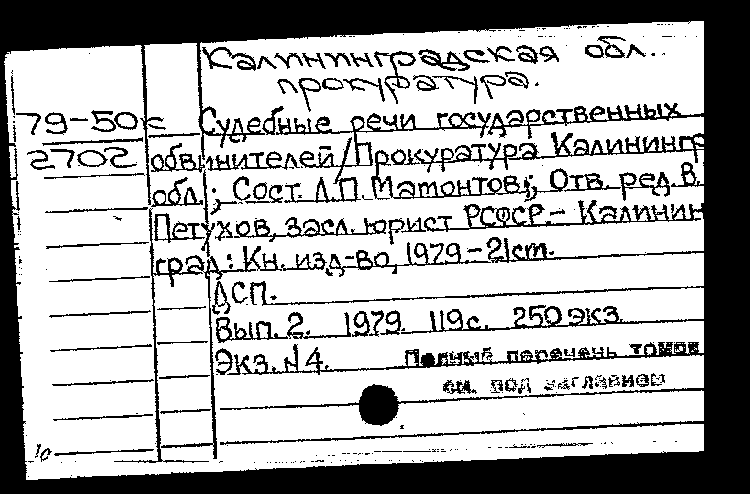 Калининградская обл..
прокуратура.
79-50к Судебные речи государственных
2702 обвинителей/Прокуратура Калинингр
обл.; Сост. Л.П. Матонтов; Отв. ред. В.
Петухов, засл. юрист РСФСР.- Калинин
град: Кн. изд-во, 1979.-21см.
ДСП.
Вып. 2. 1979. 119с. 250 экз.
Экз. №4. Полный перечень томов
см. под заглавием
10